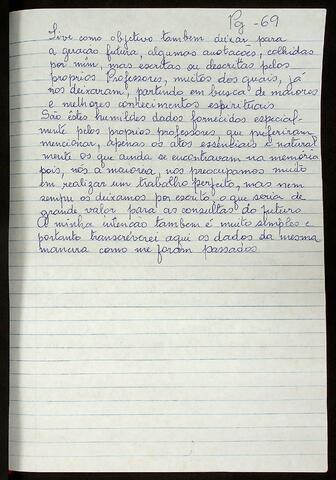 Pg - 69
Tive como objetivo tambem deixar para
a geração futura, algumas anotacoes, colhidas
por mim, mas escritas ou descritas pelos
proprios Professores, muitos dos quais, já
nos deixaram, partindo em busca de maiores
e melhores conhecimentos espirituais
São êstes humildes dados fornecidos especial-
mente pelos proprios professores, que preferiram
mencionar, apenas os atos essenciais e natural
mente os que ainda se encontravam na memória
pois, nós a maioria, nos preocupamos muito
em realizar um trabalho perfeito, mas nem
sempre os deixamos por escrito, o que seria de
grande valor para as consultas do futuro
A minha intencão tambem é muito simples e
portanto transcreverei aqui os dados da mesma
maneira como me foram passados